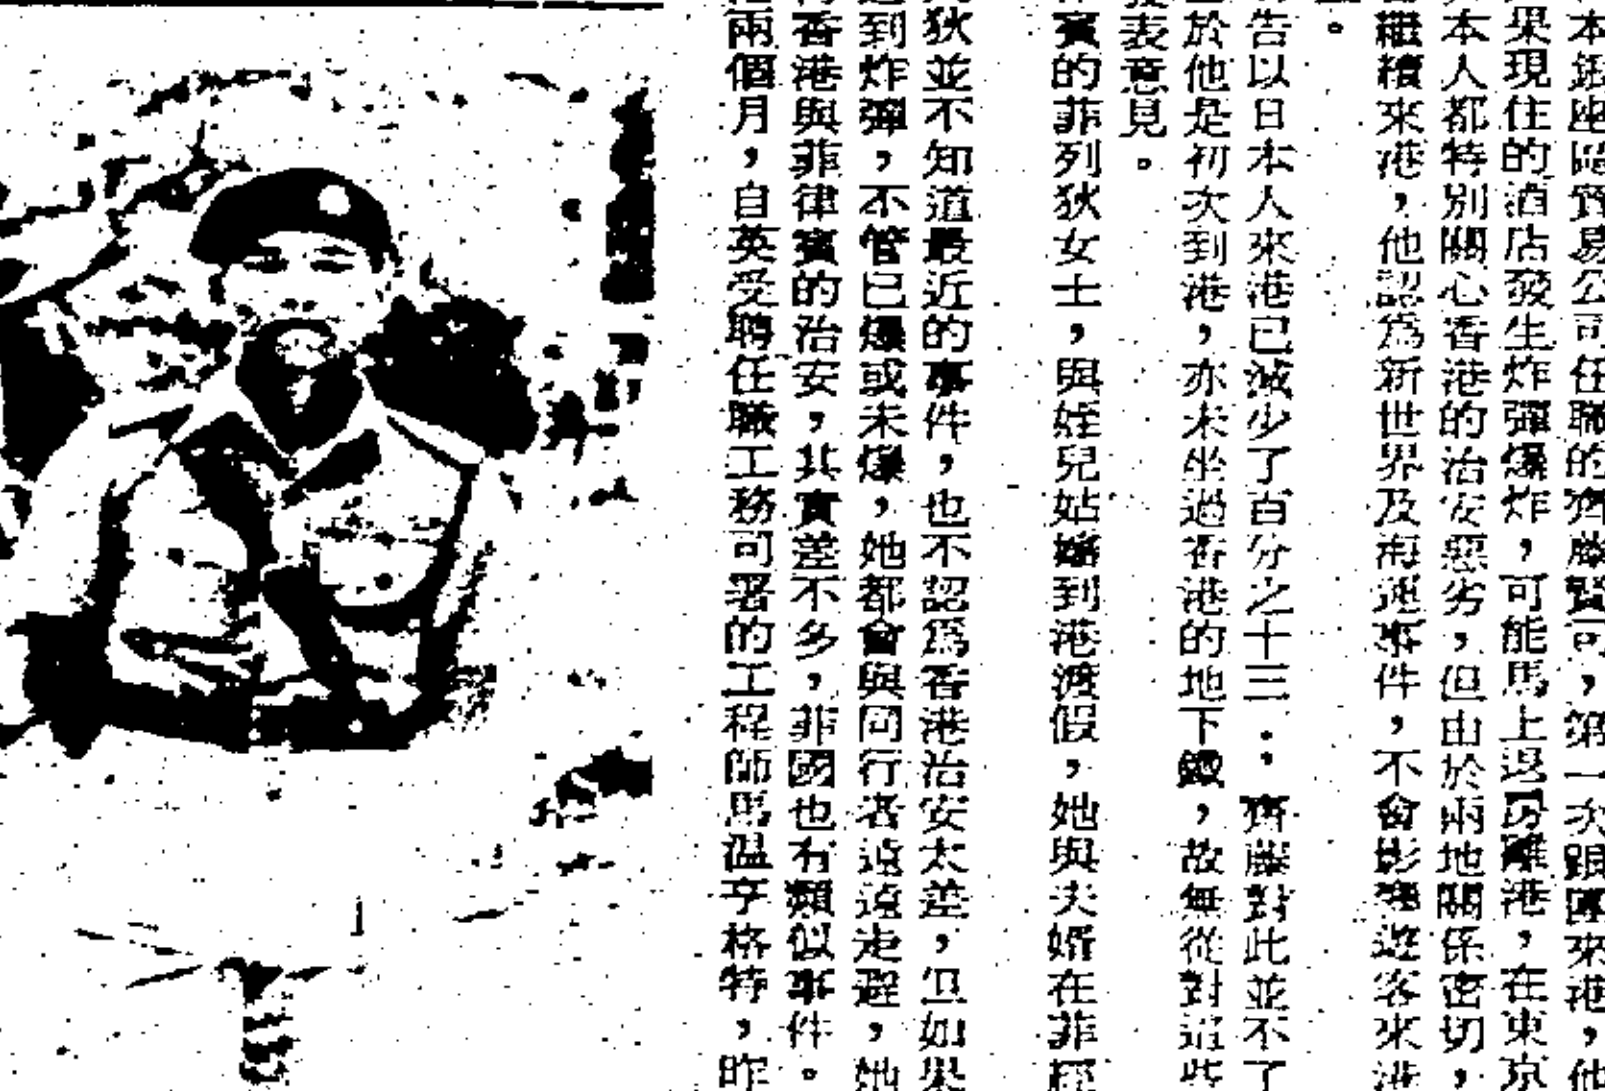 本銀座陽貿易公司任職的齊藤賢司，第一次跟團來港，他
果現住的酒店發生炸彈爆炸，可能馬上退房離港，在東京
本人都特別關心香港的治安惡劣，但由於兩地關係密切，
繼續來港，他認爲新世界及海運事件，不會影響遊客來港
。
告以日本人來港已減少了百分之十三：齊藤對此並不了
於他是初次到港，亦未坐過香港的地下鐵，故無從對這些
發表意見。
賓的菲列狄女士，與姪兒姑嫲到港渡假，她與夫婿在菲經
狄並不知道最近的事件，也不認爲香港治安太差，但如果
到炸彈，不管已爆或未爆，她都會與同行者遠遠走避，她
香港與菲律賓的治安，其實差不多，菲國也有類似事件。
兩個月，自英受聘任職工務司署的工程師馬温亨格特，昨